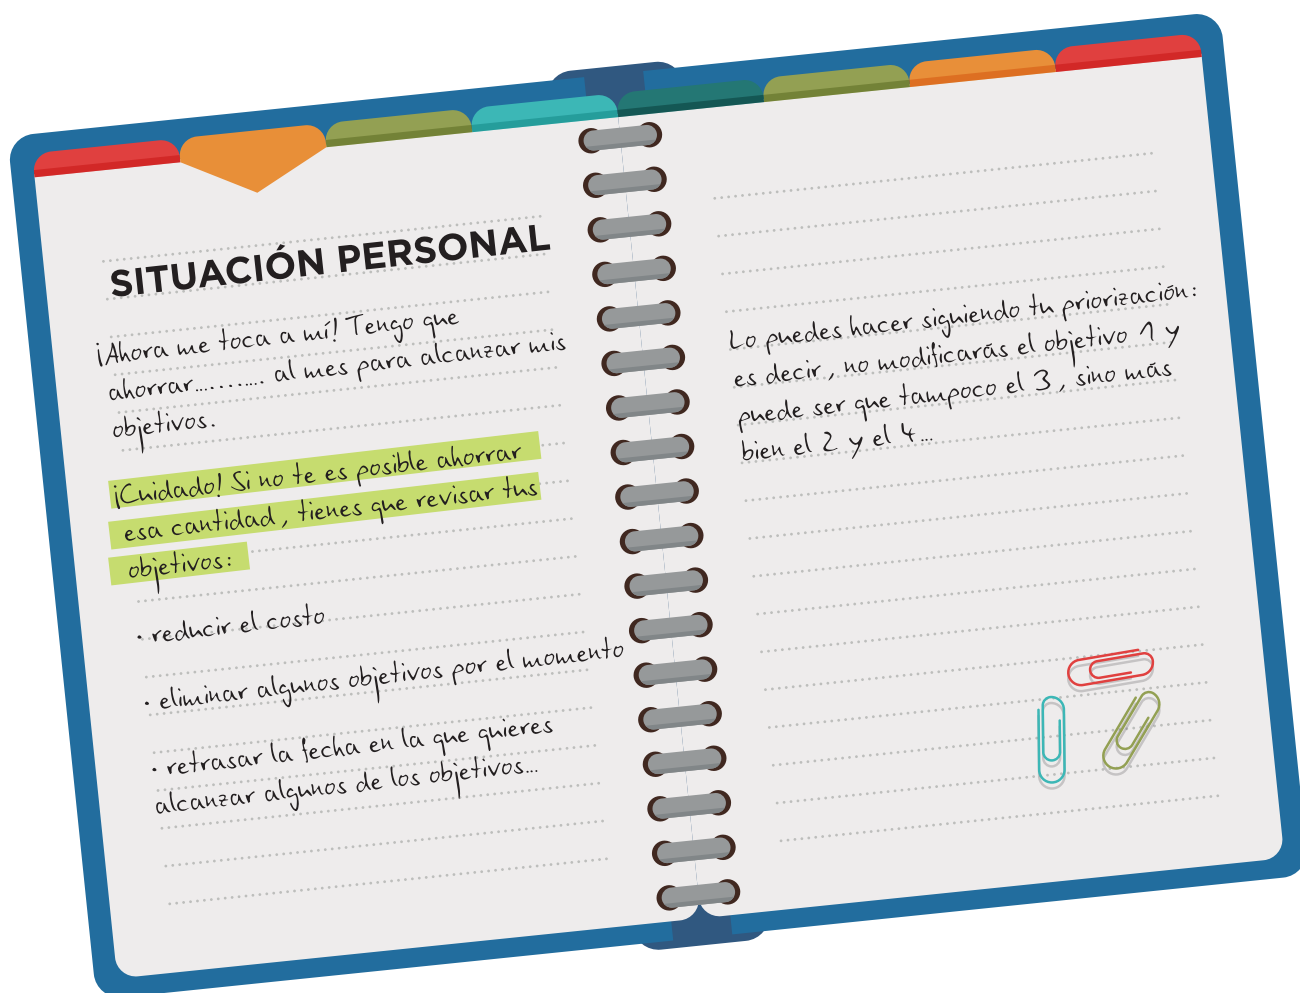 SITUACIÓN PERSONAL
¡Ahora me toca a mí! Tengo que
ahorrar........... al mes para alcanzar mis
objetivos.
¡Cuidado! Si no te es posible ahorrar
esa cantidad, tienes que revisar tus
objetivos:
· reducir el costo
· eliminar algunos objetivos por el momento
· retrasar la fecha en la que quieres
alcanzar algunos de los objetivos...
Lo puedes hacer siguiendo tu priorización:
es decir, no modificarás el objetivo 1 y
puede ser que tampoco el 3, sino más
bien el 2 y el 4...